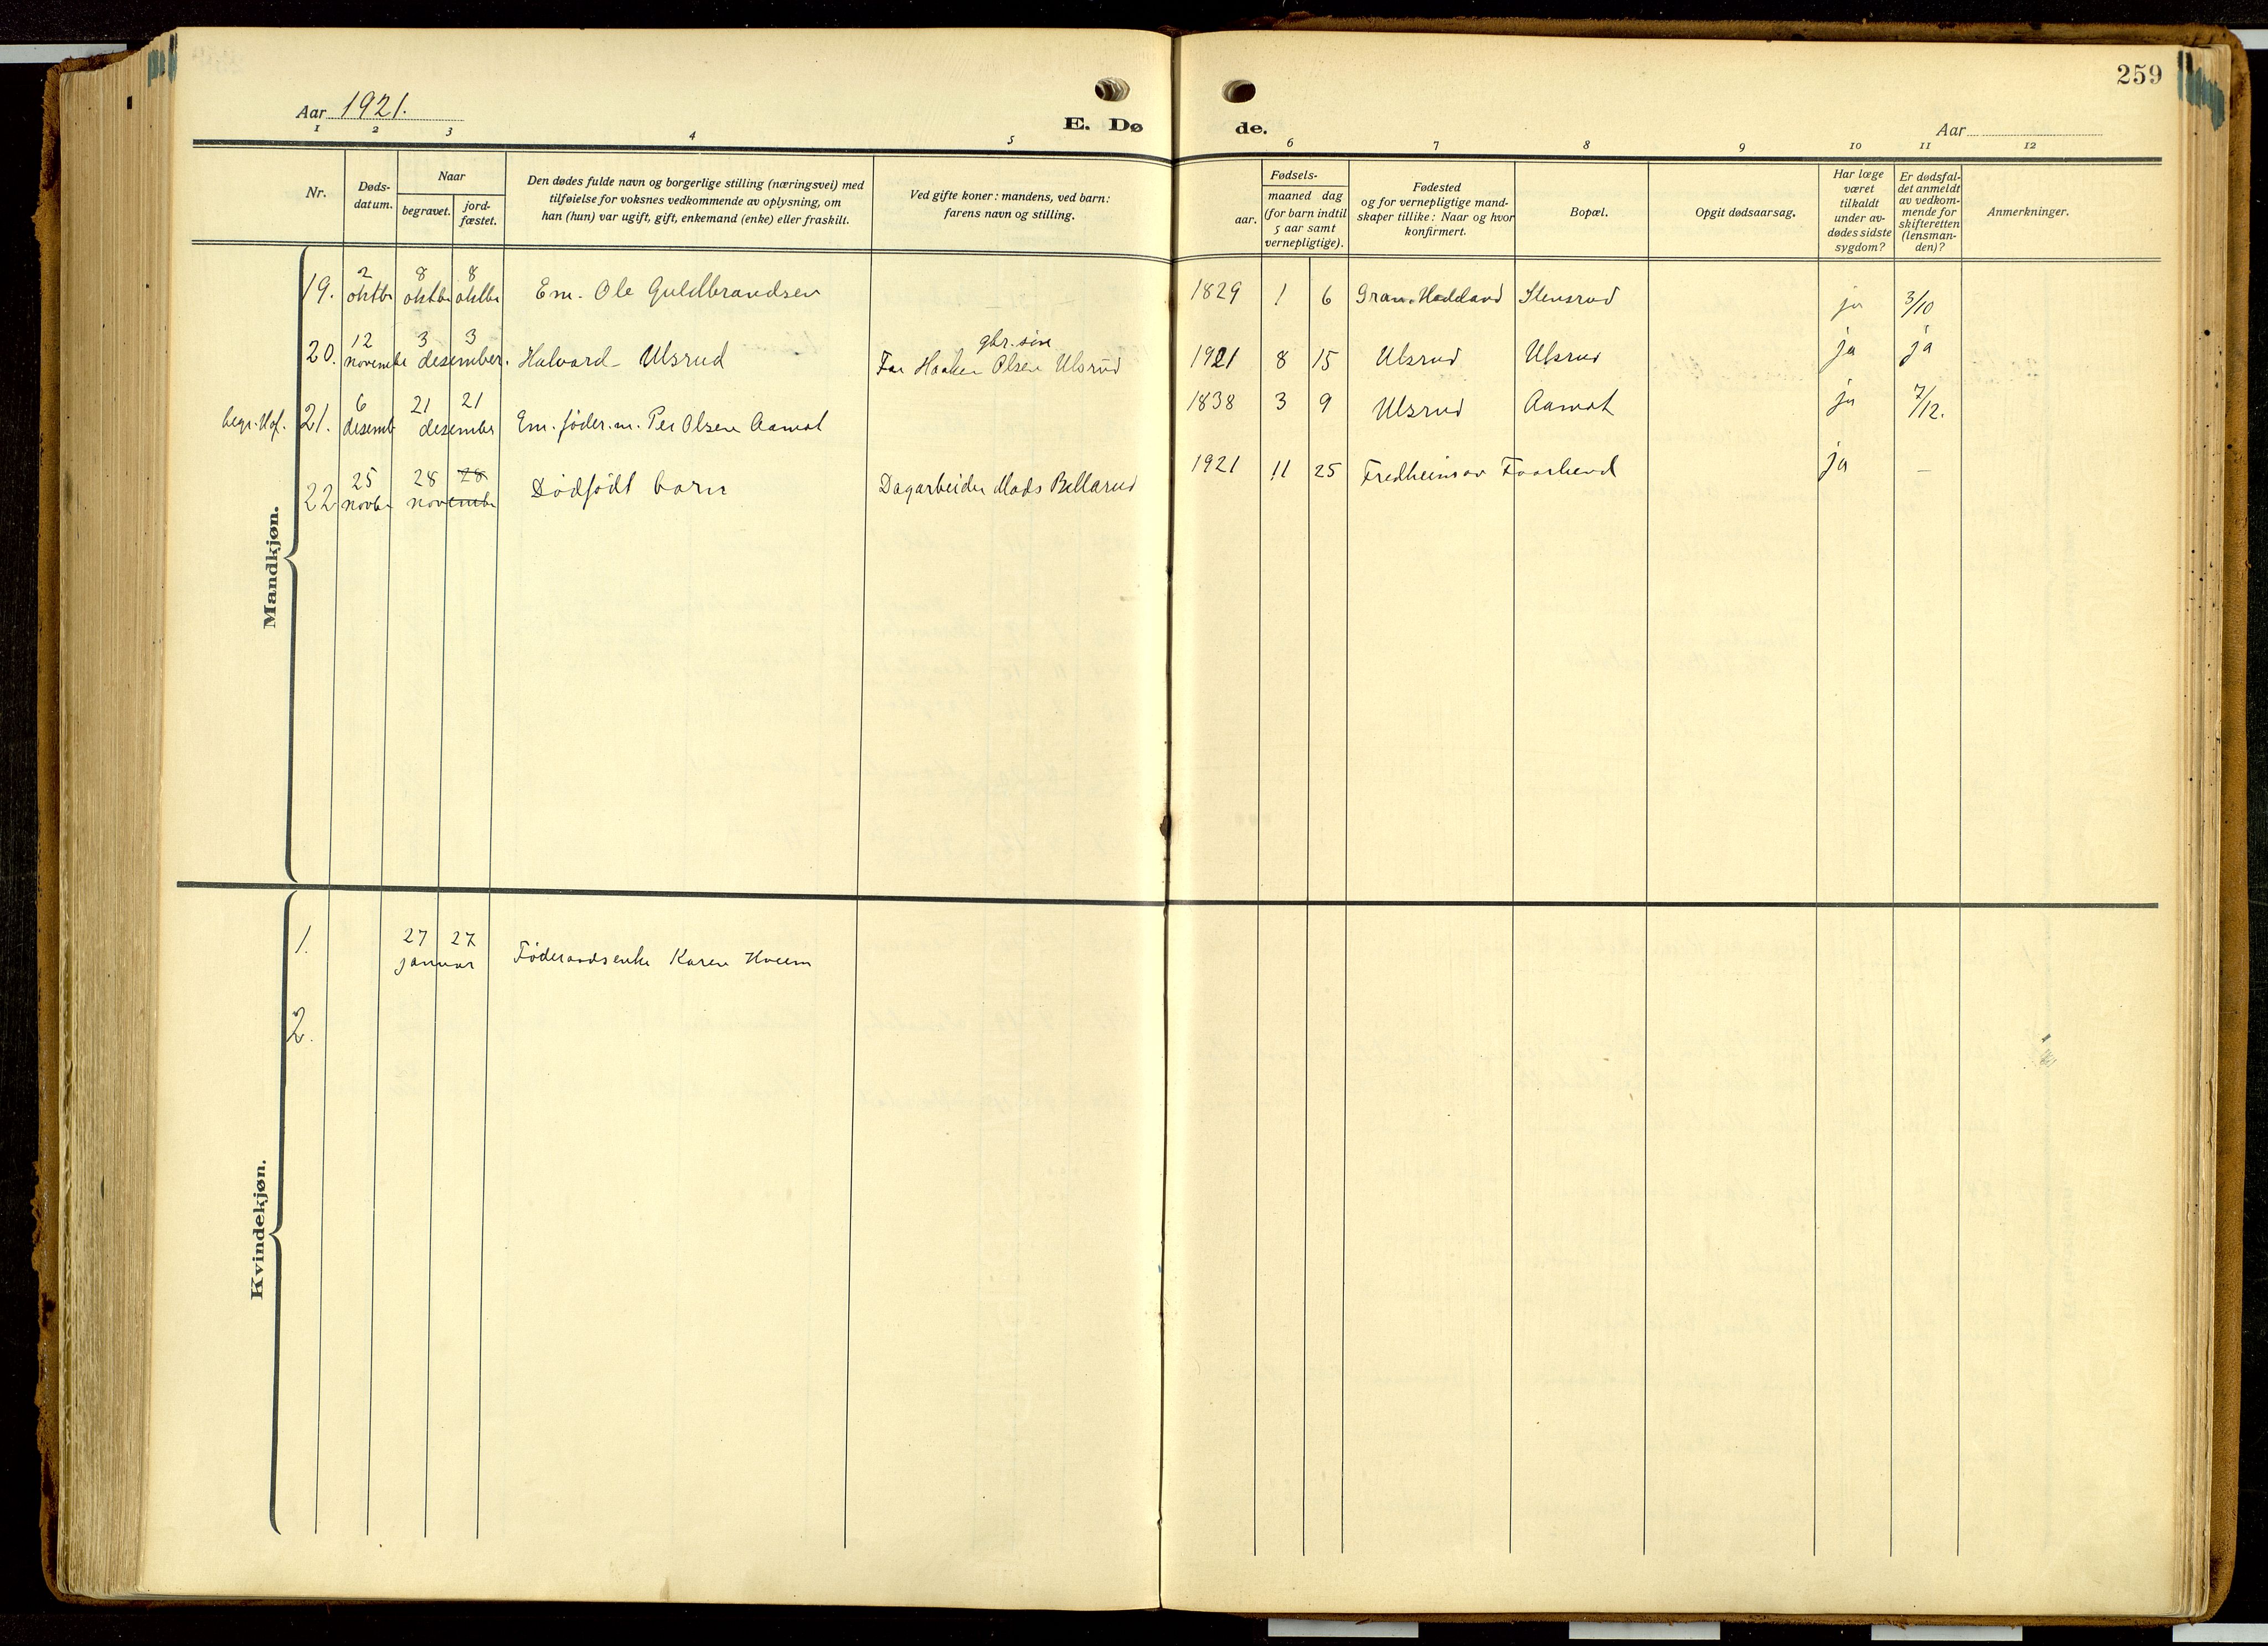 259
Aar 1921.
E. Dø de.
Aar
1 2 3 4 5 6 7 8 9 10 11 12
Nr.
Døds-
datum.
Naar
begravet.
jord-
fæstet.
Den dødes fulde navn og borgerlige stilling (næringsvei) med
tilføielse for voksnes vedkommende av oplysning, om
han (hun) var ugift, gift, enkemand (enke) eller fraskilt.
Ved gifte koner: mandens, ved barn:
farens navn og stilling.
Fødsels-
aar.
maaned dag
(for barn indtil
5 aar samt
vernepligtige).
Fødested
og for vernepligtige mand-
skaper tillike: Naar og hvor
konfirmert.
Bopæl.
Opgit dødsaarsag.
Har læge
været
tilkaldt
under av-
dødes sidste
sygdom?
Er dødsfal-
det anmeldt
av vedkom-
mende for
skifteretten
(lensman-
den)?
Anmerkninger.
Mandkjøn.
2 8 8
19. oktbr oktbr oktbr Em. Ole Guldbrandsen 1829 1 6 Gran. Hadeland Stensrud ja 3/10
12 3 3 gbr. søn
20. novembr desember. Halvard Ulsrud Far Haaken Olsen Ulsrud 1921 8 15 Ulsrud Ulsrud ja ja
6 21 21
begr. Hof. 21. desemb desember Em. føder. m. Per Olsen Aamot 1838 3 9 Ulsrud Aamot ja 7/12.
25 28 28
22 novbr november Dødfødt barn Dagarbeider Mads Bellarud 1921 11 25 Fredheim av Faarlund ja –
Kvindekjøn.
27 27
1. januar Føderaadsenke Karen Hveem
2.